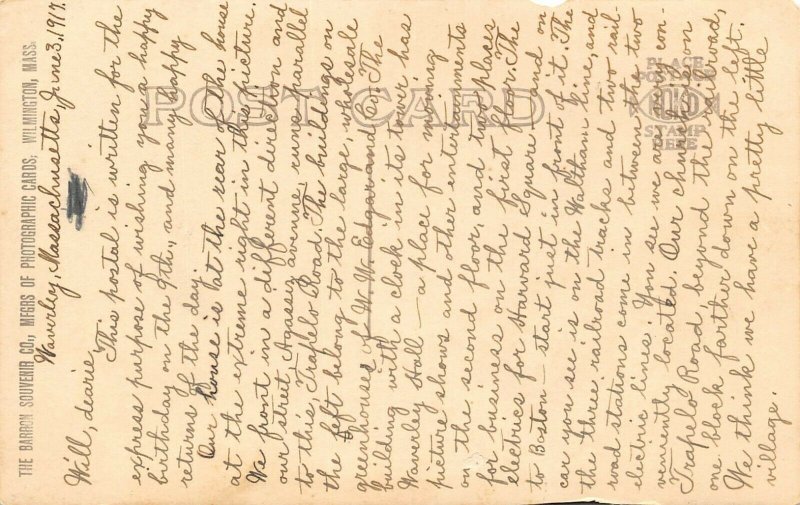 THE BARRON SOUVENIR CO., MFGRS OF PHOTOGRAPHIC CARDS, WILMINGTON, MASS.
POST CARD
PLACE
STAMP
HERE
Waverley, Massachusetts, June 3, 1917.
Will, dearie,
This postal is written for the
express purpose of wishing you a happy
birthday on the 9th, and many happy
returns of the day.
Our house is at the rear of the house
at the extreme right in this picture.
We front in a different direction and
our street, Agassiz avenue runs parallel
to this, Trapelo Road. The buildings on
the left belong to the large, wholesale
greenhouses of W. W. Edgar and Co. The
building with a clock in its tower has
Waverley Hall - a place for moving
picture shows and other entertainments
on the second floor, and two places
for business on the first floor. The
electrics for Harvard Square and on
to Boston - start just in front of it. The
car you see is on the Waltham line, and
the three railroad tracks and two rail-
road stations come in between the two
electric lines. You see we are very con-
veniently located. Our church is on
Trapelo Road, beyond the railroad,
one block farther down on the left.
We think we have a pretty little
village.